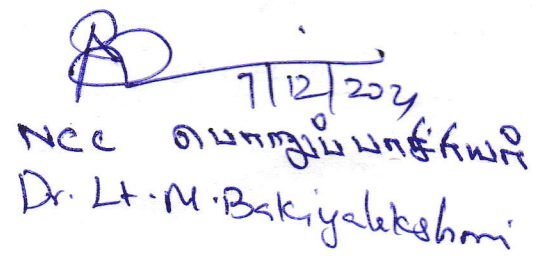 7/12/2021
NCC பொறுப்பாசிரியர்
Dr. Lt. M. Bakiyalekshmi